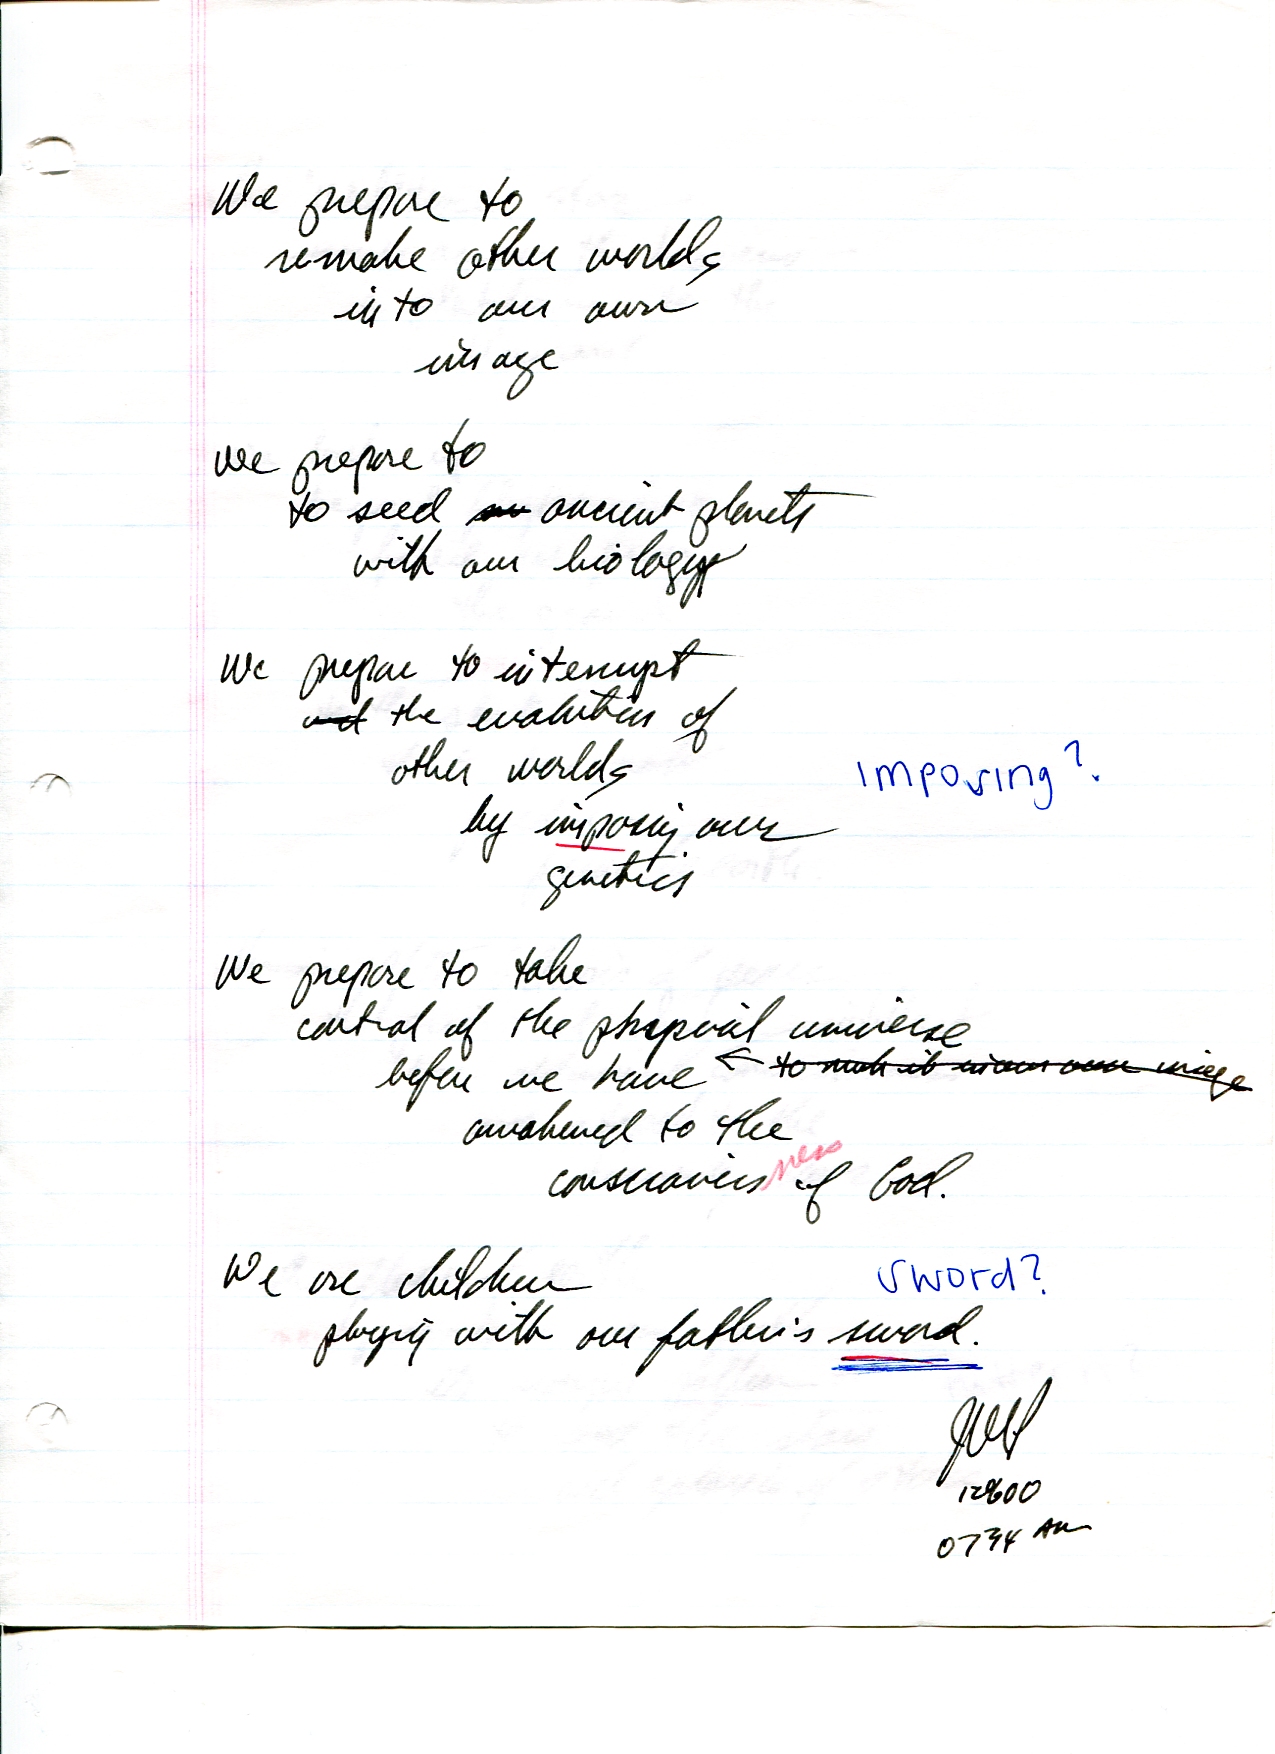 We prepare to
remake other worlds
into our own
image
We prepare to
to seed ancient planets
with our biology
We prepare to interrupt
and the evolution of
other worlds
imposing?
by imposing our
genetics
We prepare to take
control of the physical universe
before we have ← to make it in our own image
awakened to the
consciousness of God.
We are children
sword?
playing with our father's sword.
0734 AM